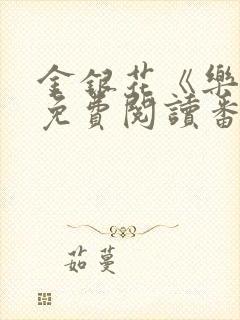 金銀花《樂
免費閱讀番
茹蔓